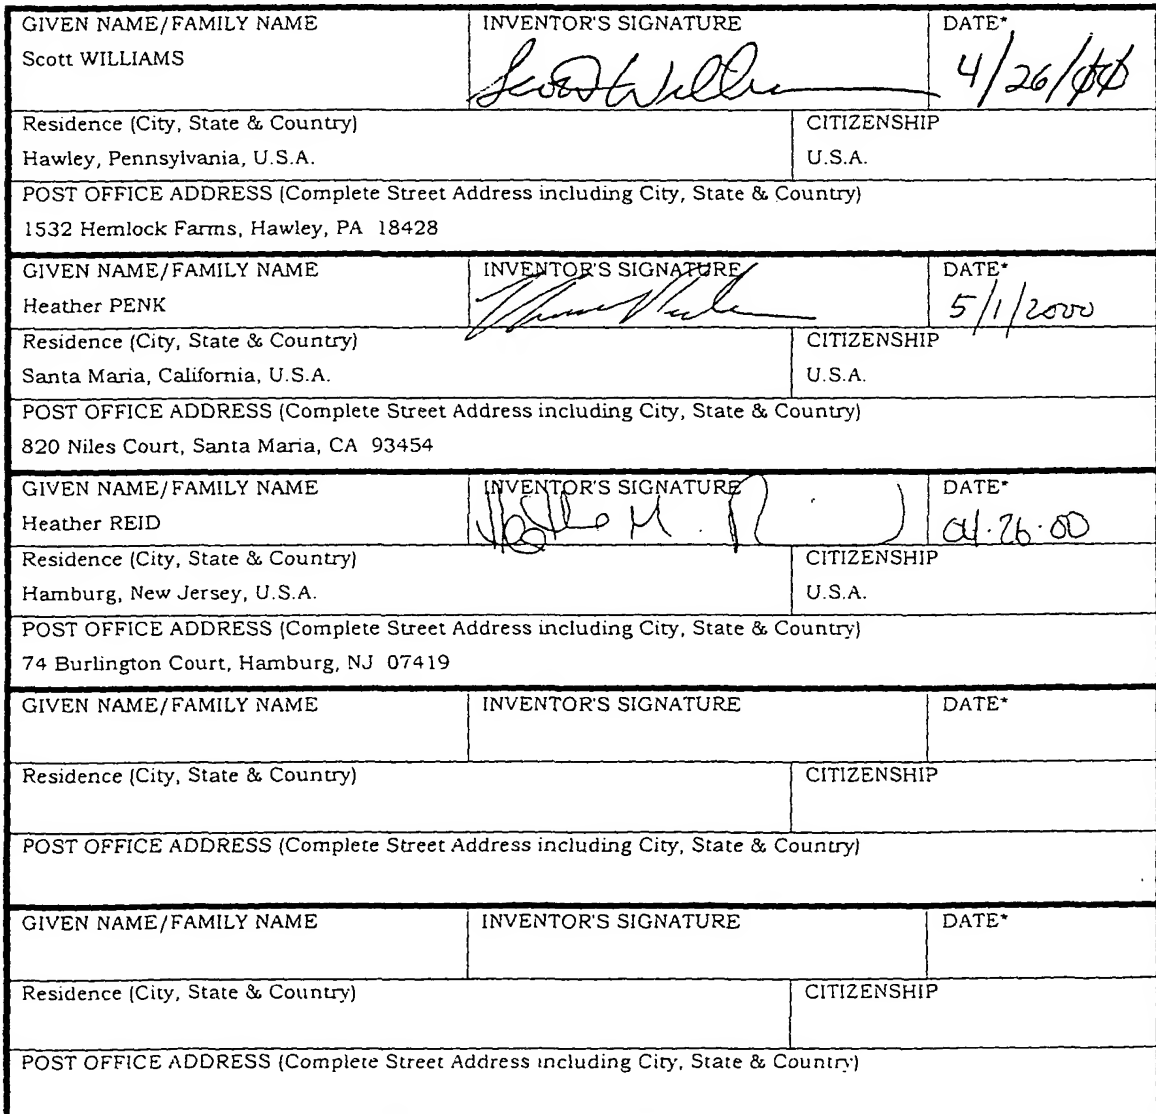 GIVEN NAME/FAMILY NAME INVENTOR'S SIGNATURE DATE*
Scott WILLIAMS Scott Willi 4/26/00
Residence (City, State & Country) CITIZENSHIP
Hawley, Pennsylvania, U.S.A. U.S.A.
POST OFFICE ADDRESS (Complete Street Address including City, State & Country)
1532 Hemlock Farms, Hawley, PA 18428
GIVEN NAME/FAMILY NAME INVENTOR'S SIGNATURE DATE*
Heather PENK 5/1/2000
Residence (City, State & Country) CITIZENSHIP
Santa Maria, California, U.S.A. U.S.A.
POST OFFICE ADDRESS (Complete Street Address including City, State & Country)
820 Niles Court, Santa Maria, CA 93454
GIVEN NAME/FAMILY NAME INVENTOR'S SIGNATURE DATE*
Heather REID Heather M. Reid 04.26.00
Residence (City, State & Country) CITIZENSHIP
Hamburg, New Jersey, U.S.A. U.S.A.
POST OFFICE ADDRESS (Complete Street Address including City, State & Country)
74 Burlington Court, Hamburg, NJ 07419
GIVEN NAME/FAMILY NAME INVENTOR'S SIGNATURE DATE*
Residence (City, State & Country) CITIZENSHIP
POST OFFICE ADDRESS (Complete Street Address including City, State & Country)
GIVEN NAME/FAMILY NAME INVENTOR'S SIGNATURE DATE*
Residence (City, State & Country) CITIZENSHIP
POST OFFICE ADDRESS (Complete Street Address including City, State & Country)